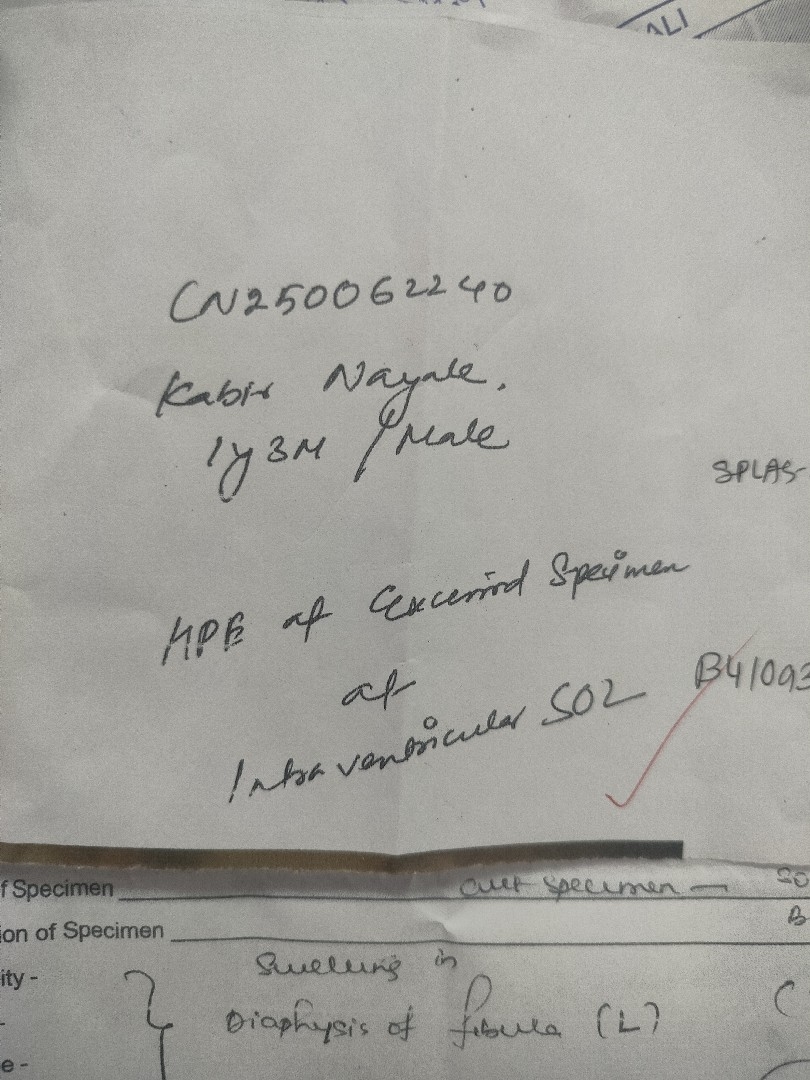 ALI
CN250062240
Kabir Nayak.
1y 3M / Male
SPLAS
HPE of Excised Specimen
of
Intraventricular SOL
B41093
f Specimen
Curt specimen — SO
ion of Specimen
B
ity -
Swelling in
Diaphysis of fibula (L)
e -